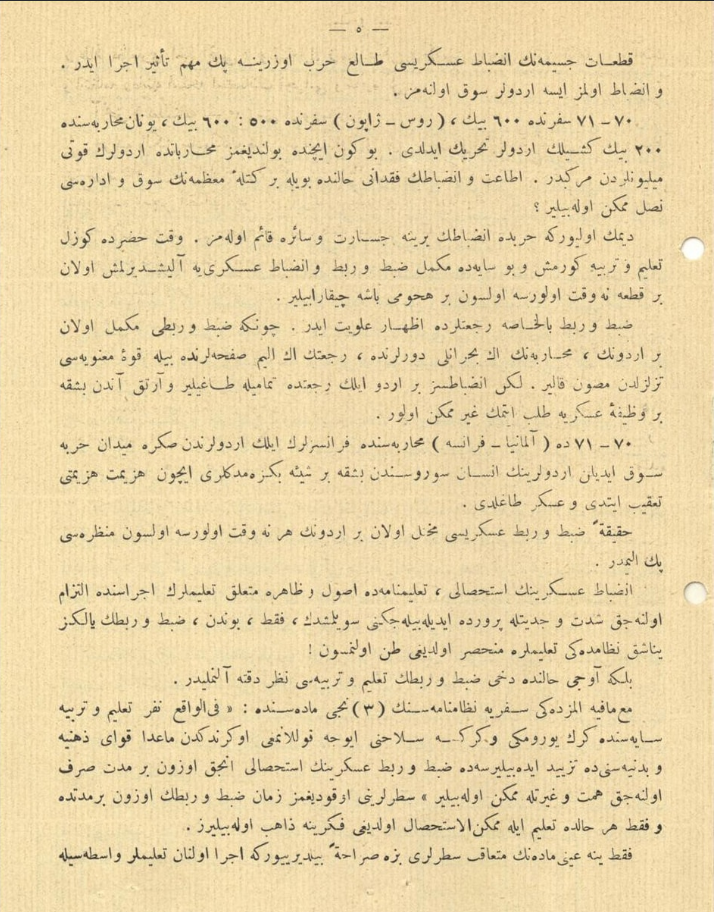 — ٥ —
قطعات جسیمه‌نك انضباط عسكریسی طالع حرب اوزرینه پك مهم تأثیر اجرا ایدر .
و انضباط اولمز ایسه اردولر سوق اولنه‌مز .
٧٠ – ٧١ سفرنده ٦٠٠ بیك ، ( روس – ژاپون ) سفرنده ٥٠٠ : ٦٠٠ بیك ، یونان محاربه‌سنده
٢٠٠ بیك كشیلك اردولر تحریك ایدلدی . بو كون ایچنده بولندیغمز محارباتده اردولرك قوتی
میلیونلردن مركبدر . اطاعت و انضباطك فقدانی حالنده بویله بر كتلهٔ معظمه‌نك سوق و اداره‌سی
نصل ممكن اوله‌بیلیر ؟
دیمك اولیوركه حربده انضباطك یرینه جسارت و سائره قائم اوله‌مز . وقت حضرده كوزل
تعلیم و تربیه كورمش و بو سایه‌ده مكمل ضبط و ربط و انضباط عسكری‌یه آلیشدیرلمش اولان
بر قطعه نه وقت اولورسه اولسون بر هجومی باشه چیقارابیلیر .
ضبط و ربط بالخاصه رجعتلرده اظهار علویت ایدر . چونكه ضبط و ربطی مكمل اولان
بر اردونك ، محاربه‌نك اك بحرانلی دورلرنده ، رجعتك اك الیم صفحه‌لرنده بیله قوهٔ معنویه‌سی
تزلزلدن مصون قالیر . لكن انضباطسز بر اردو ایلك رجعتده تمامیله طاغیلیر و آرتق آندن بشقه
بر وظیفهٔ عسكریه طلب ایتمك غیر ممكن اولور .
٧٠ – ٧١ ده ( آلمانیا – فرانسه ) محاربه‌سنده فرانسزلرك ایلك اردولرندن صكره میدان حربه
سوق ایدیلن اردولرینك انسان سوروسندن بشقه بر شیئه بكزه‌مدكلری ایچون هزیمت هزیمتی
تعقیب ایتدی و عسكر طاغلدی .
حقیقةً ضبط و ربط عسكریسی مختل اولان بر اردونك هر نه وقت اولورسه اولسون منظره‌سی
پك الیمدر .
انضباط عسكرینك استحصالی ، تعلیمنامه‌ده اصول و ظاهره متعلق تعلیملرك اجراسنده التزام
اولنه‌جق شدت و جدیتله پرورده ایدیله‌بیله‌جكنی سویلمشدك ، فقط ، بوندن ، ضبط و ربطك یالكز
یناشق نظامده‌كی تعلیملره منحصر اولدیغی ظن اولنمسون !
بلكه آوجی حالنده دخی ضبط و ربطك تعلیم و تربیه‌سی نظر دقته آلنملیدر .
مع مافیه المزده‌كی سفریه نظامنامه‌سنك (٣) نجی ماده‌سنده : « فی‌الواقع نفر تعلیم و تربیه
سایه‌سنده كرك یورومكی و كركسه سلاحنی ایوجه قوللانمی اوكرندكدن ماعدا قوای ذهنیه
و بدنیه‌سنی‌ده تزیید ایده‌بیلیرسه‌ده ضبط و ربط عسكرینك استحصالی انجق اوزون بر مدت صرف
اولنه‌جق همت و غیرتله ممكن اوله‌بیلیر » سطرلرینی اوقودیغمز زمان ضبط و ربطك اوزون برمدتده
و فقط هر حالده تعلیم ایله ممكن‌الاستحصال اولدیغی فكرینه ذاهب اوله‌بیلیرز .
فقط ینه عینی ماده‌نك متعاقب سطرلری بزه صراحةً بیلدیرییوركه اجرا اولنان تعلیملر واسطه‌سیله